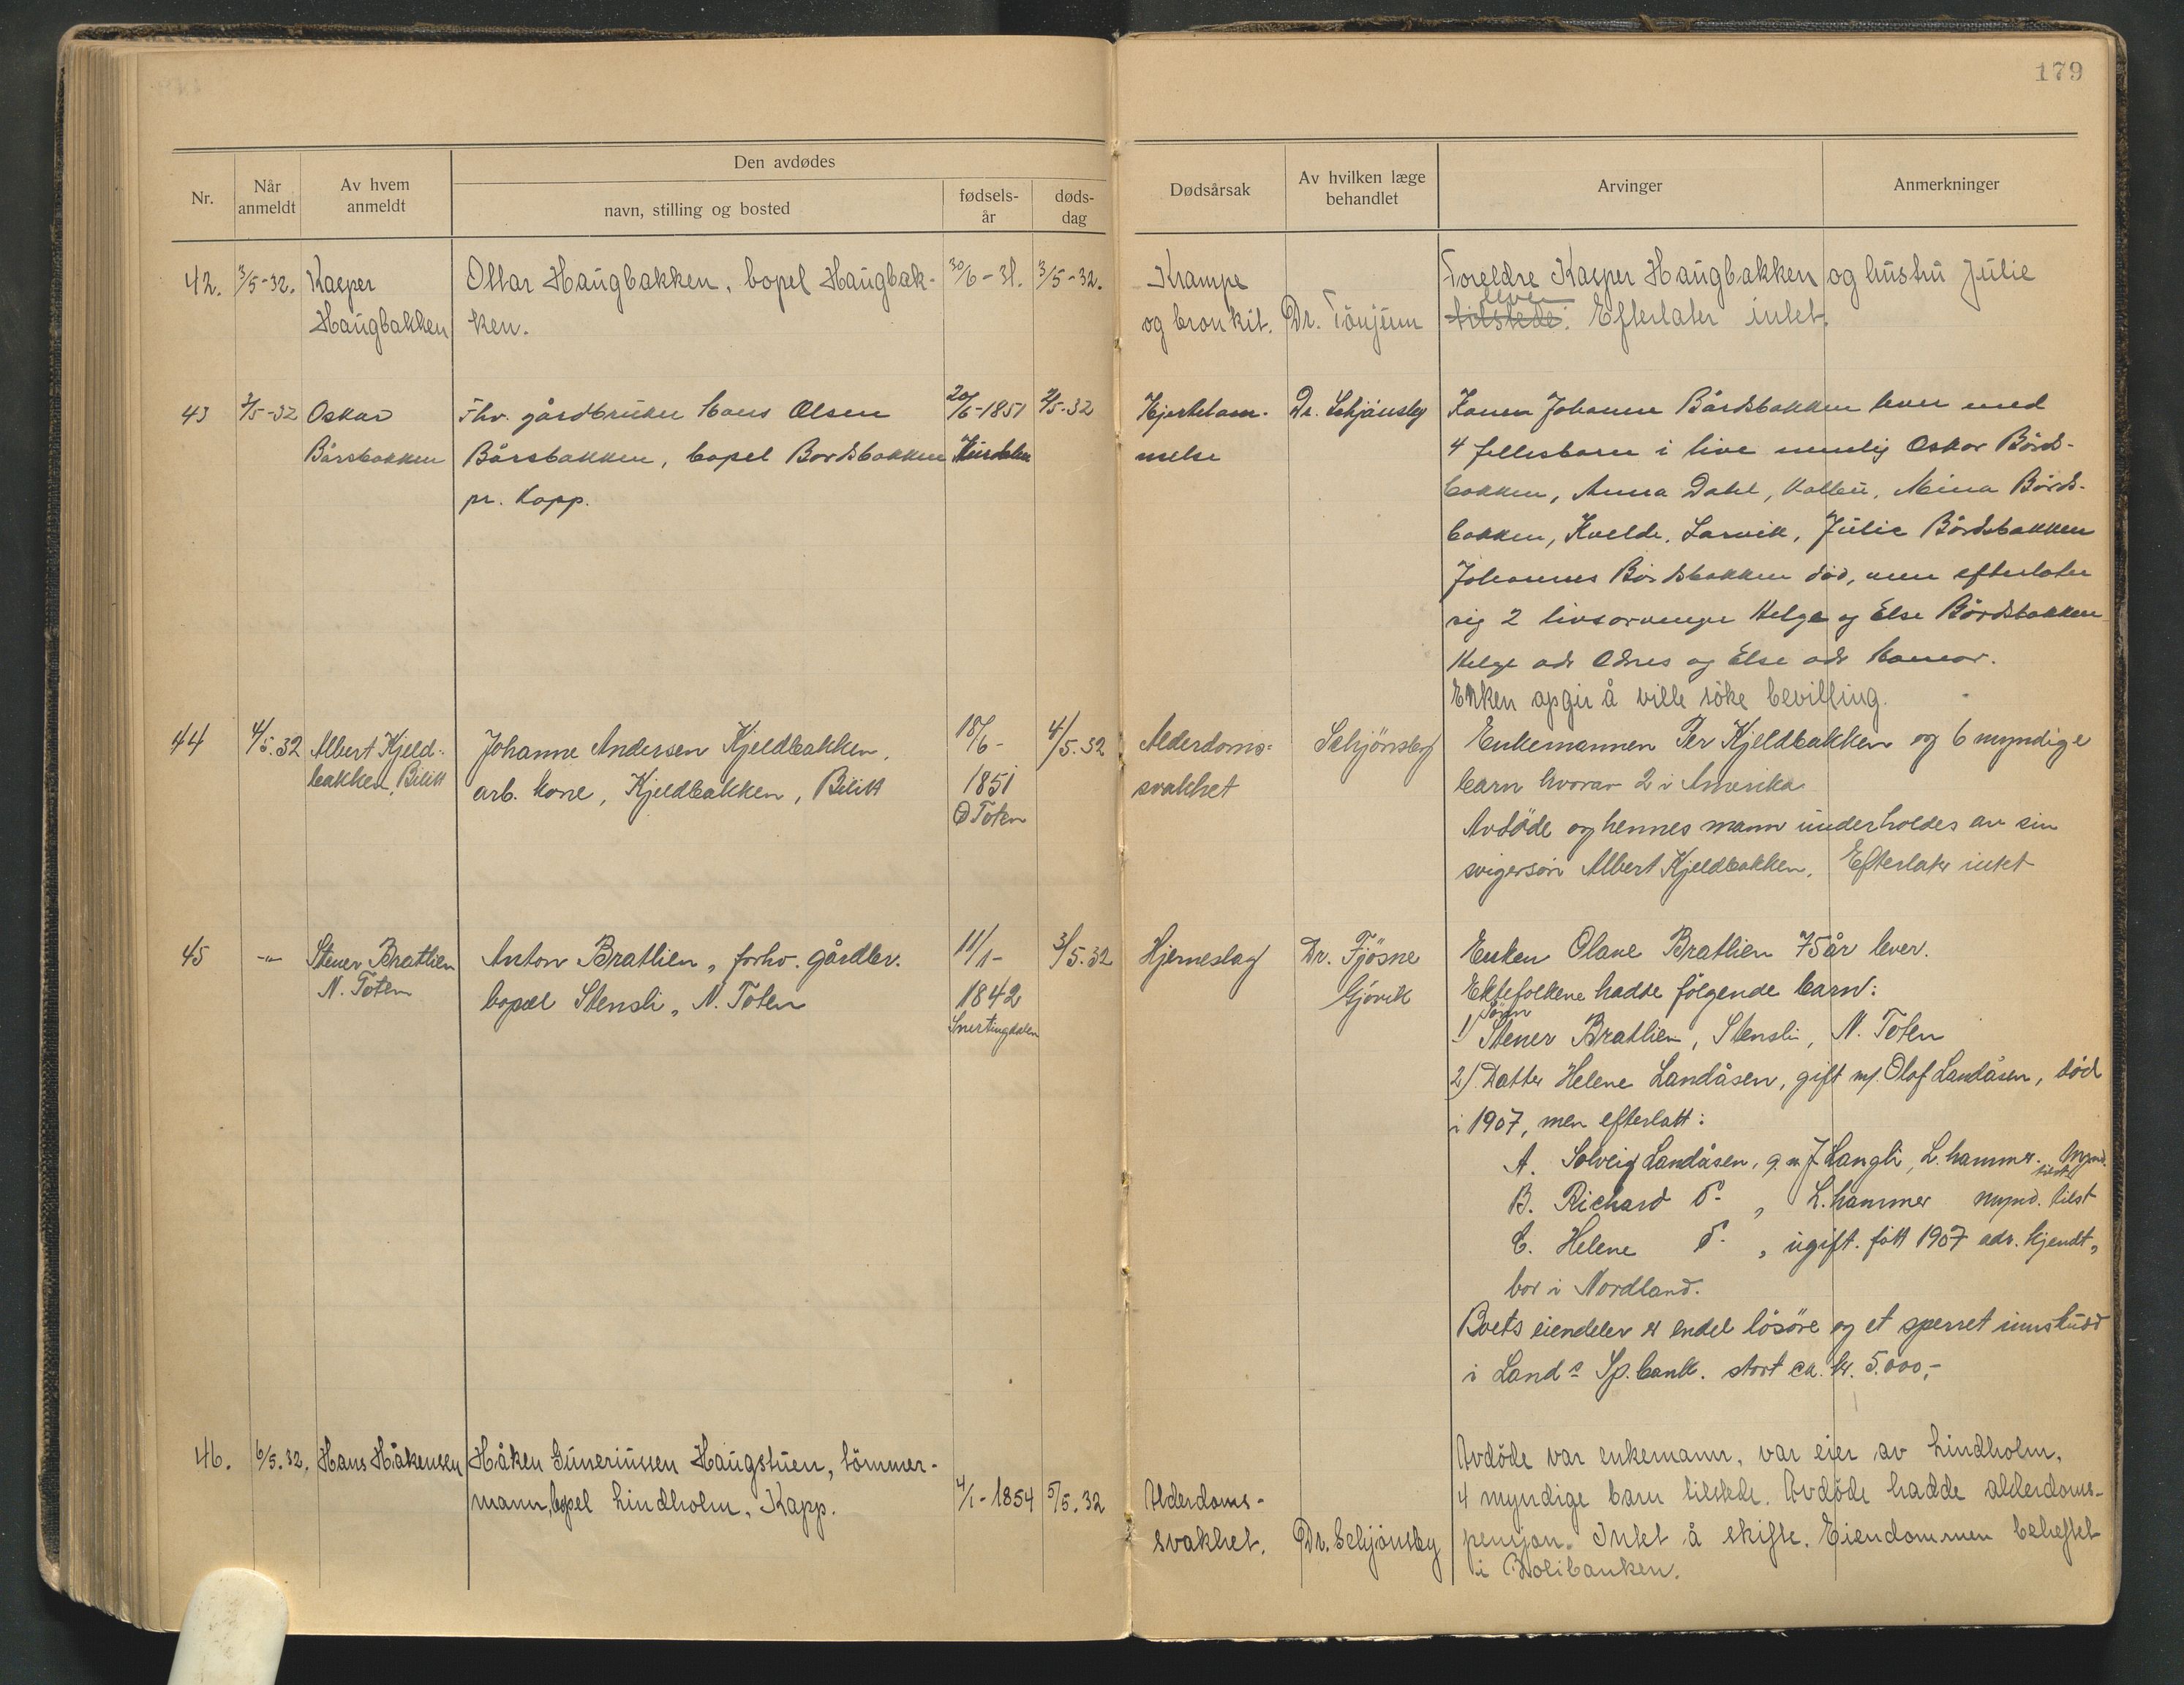 179
Nr.
Når anmeldt
Av hvem anmeldt
Den avdødes
navn, stilling og bosted
fødsels-år
døds-dag
Dødsårsak
Av hvilken læge behandlet
Arvinger
Anmerkninger
42. 3/5-32. Kasper Ottar Haugbakken, bopel Haugbak- 30/6-31. 3/5-32. Krampe Foreldre Kasper Haugbakken og hustru Julie
lever
Haugbakken ken. og bronkit. Dr. Tönjum tilstede. Efterlater intet.
43 3/5-32 Oskar Fhv. gårdbruker Hans Olsen 20/6-1851 2/5-32 Hjertelam- Dr. Schjönsby Konen Johanne Bårdsbakken lever med
Bårsbakken Bårsbakken, bopel Bordsbakken Hurdalen melse 4 fellesbarn i live nemlig Oskar Bårds-
pr. Kapp. bakken, Anna Dahl, Kolbu, Mina Bårds-
bakken, Kvelde, Larvik, Julie Bårdsbakken
Johannes Bårdsbakken död, men efterlater
sig 2 livsarvinger Helge og Else Bårdsbakken
Helge adr Odnes og Else adr Hamar.
Enken opgir å ville söke bevilling.
44 4/5.32 Albert Kjeld- Johanne Andersen Kjeldbakken, 18/6- 4/5.32 Alderdoms- Schjönsby Enkemannen Per Kjeldbakken og 6 myndige
bakken, Bilitt arb. kone, Kjeldbakken, Bilitt 1851 svakhet barn hvorav 2 i Amerika
Ø Toten Avdöde og hennes mann underholdes av sin
svigersön Albert Kjeldbakken. Efterlater intet
45 -"- Stener Bratlien Anton Bratlien, forhv. gårdbr. 11/1- 3/5.32 Hjerneslag Dr. Fjösne Enken Olave Bratlien 75 år lever.
N. Toten bopæl Stensli, N. Toten 1842 Gjövik Ektefolkene hadde fölgende barn:
Snertingdalen Sönn
1) Stener Bratlien, Stensli, N. Toten
2) Datter Helene Landåsen, gift m/. Olaf Landåsen, död
i 1907, men efterlatt:
A. Solveig Landåsen, g.m. J. Langli, L.hammer. Mynd. tilst
B. Richard d- , L.hammer mynd. tilst
C. Helene d- , ugift. födt 1907 adr. kjendt,
bor i Nordland.
Boets eiendeler er endel lösöre og et sperret innskudd
i Lands Sp.bank. stort ca. kr. 5.000,-
46. 6/5.32. Hans Håkensen Håken Guneriussen Haugstuen, tömmer- Avdöde var enkemann, var eier av Lindholm,
mann, bopel Lindholm, Kapp. 4/1-1854 5/5.32 Alderdoms- 4 myndige barn tilstede. Avdöde hadde alderdoms-
svakhet. Dr. Schjönsby pensjon. Intet å skifte. Eiendommen beheftet
i Bolibanken.